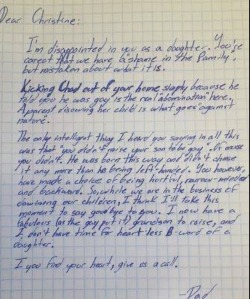 Dear Christine:
I'm disappointed in you as a daughter. You're
correct that we have a "shame in the family,"
but mistaken about what it is.
Kicking Chad out of your home simply because he
told you he was gay is the real "abomination" here.
A parent disowning her child is what goes "against
nature".
The only intelligent thing I heard you saying in all this
was that "you didn't raise your son to be gay". Of course
you didn't. He was born this way and didn't choose
it any more than he being left-handed. You however,
have made a choice of being hurtful, narrow-minded
and backward. So, while we are in the business of
disowning our children, I think I'll take this
moment to say goodbye to you. I now have a
fabulous (as the gay put it) grandson to raise, and
I don't have time for heart-less B-word of a
daughter.
If you find your heart, give us a call.
Dad